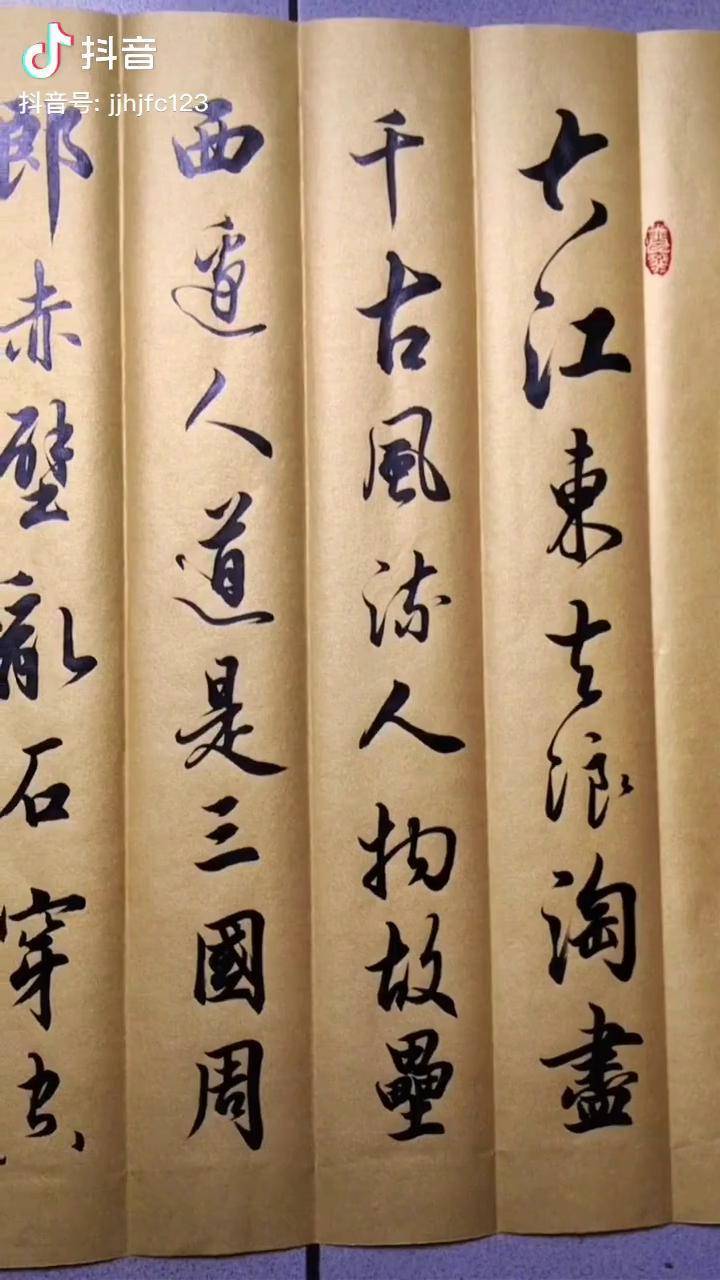 抖音
抖音号: jjhjfc123
大江東去浪淘盡
千古風流人物故壘
西邊人道是三國周
郎赤壁亂石穿空